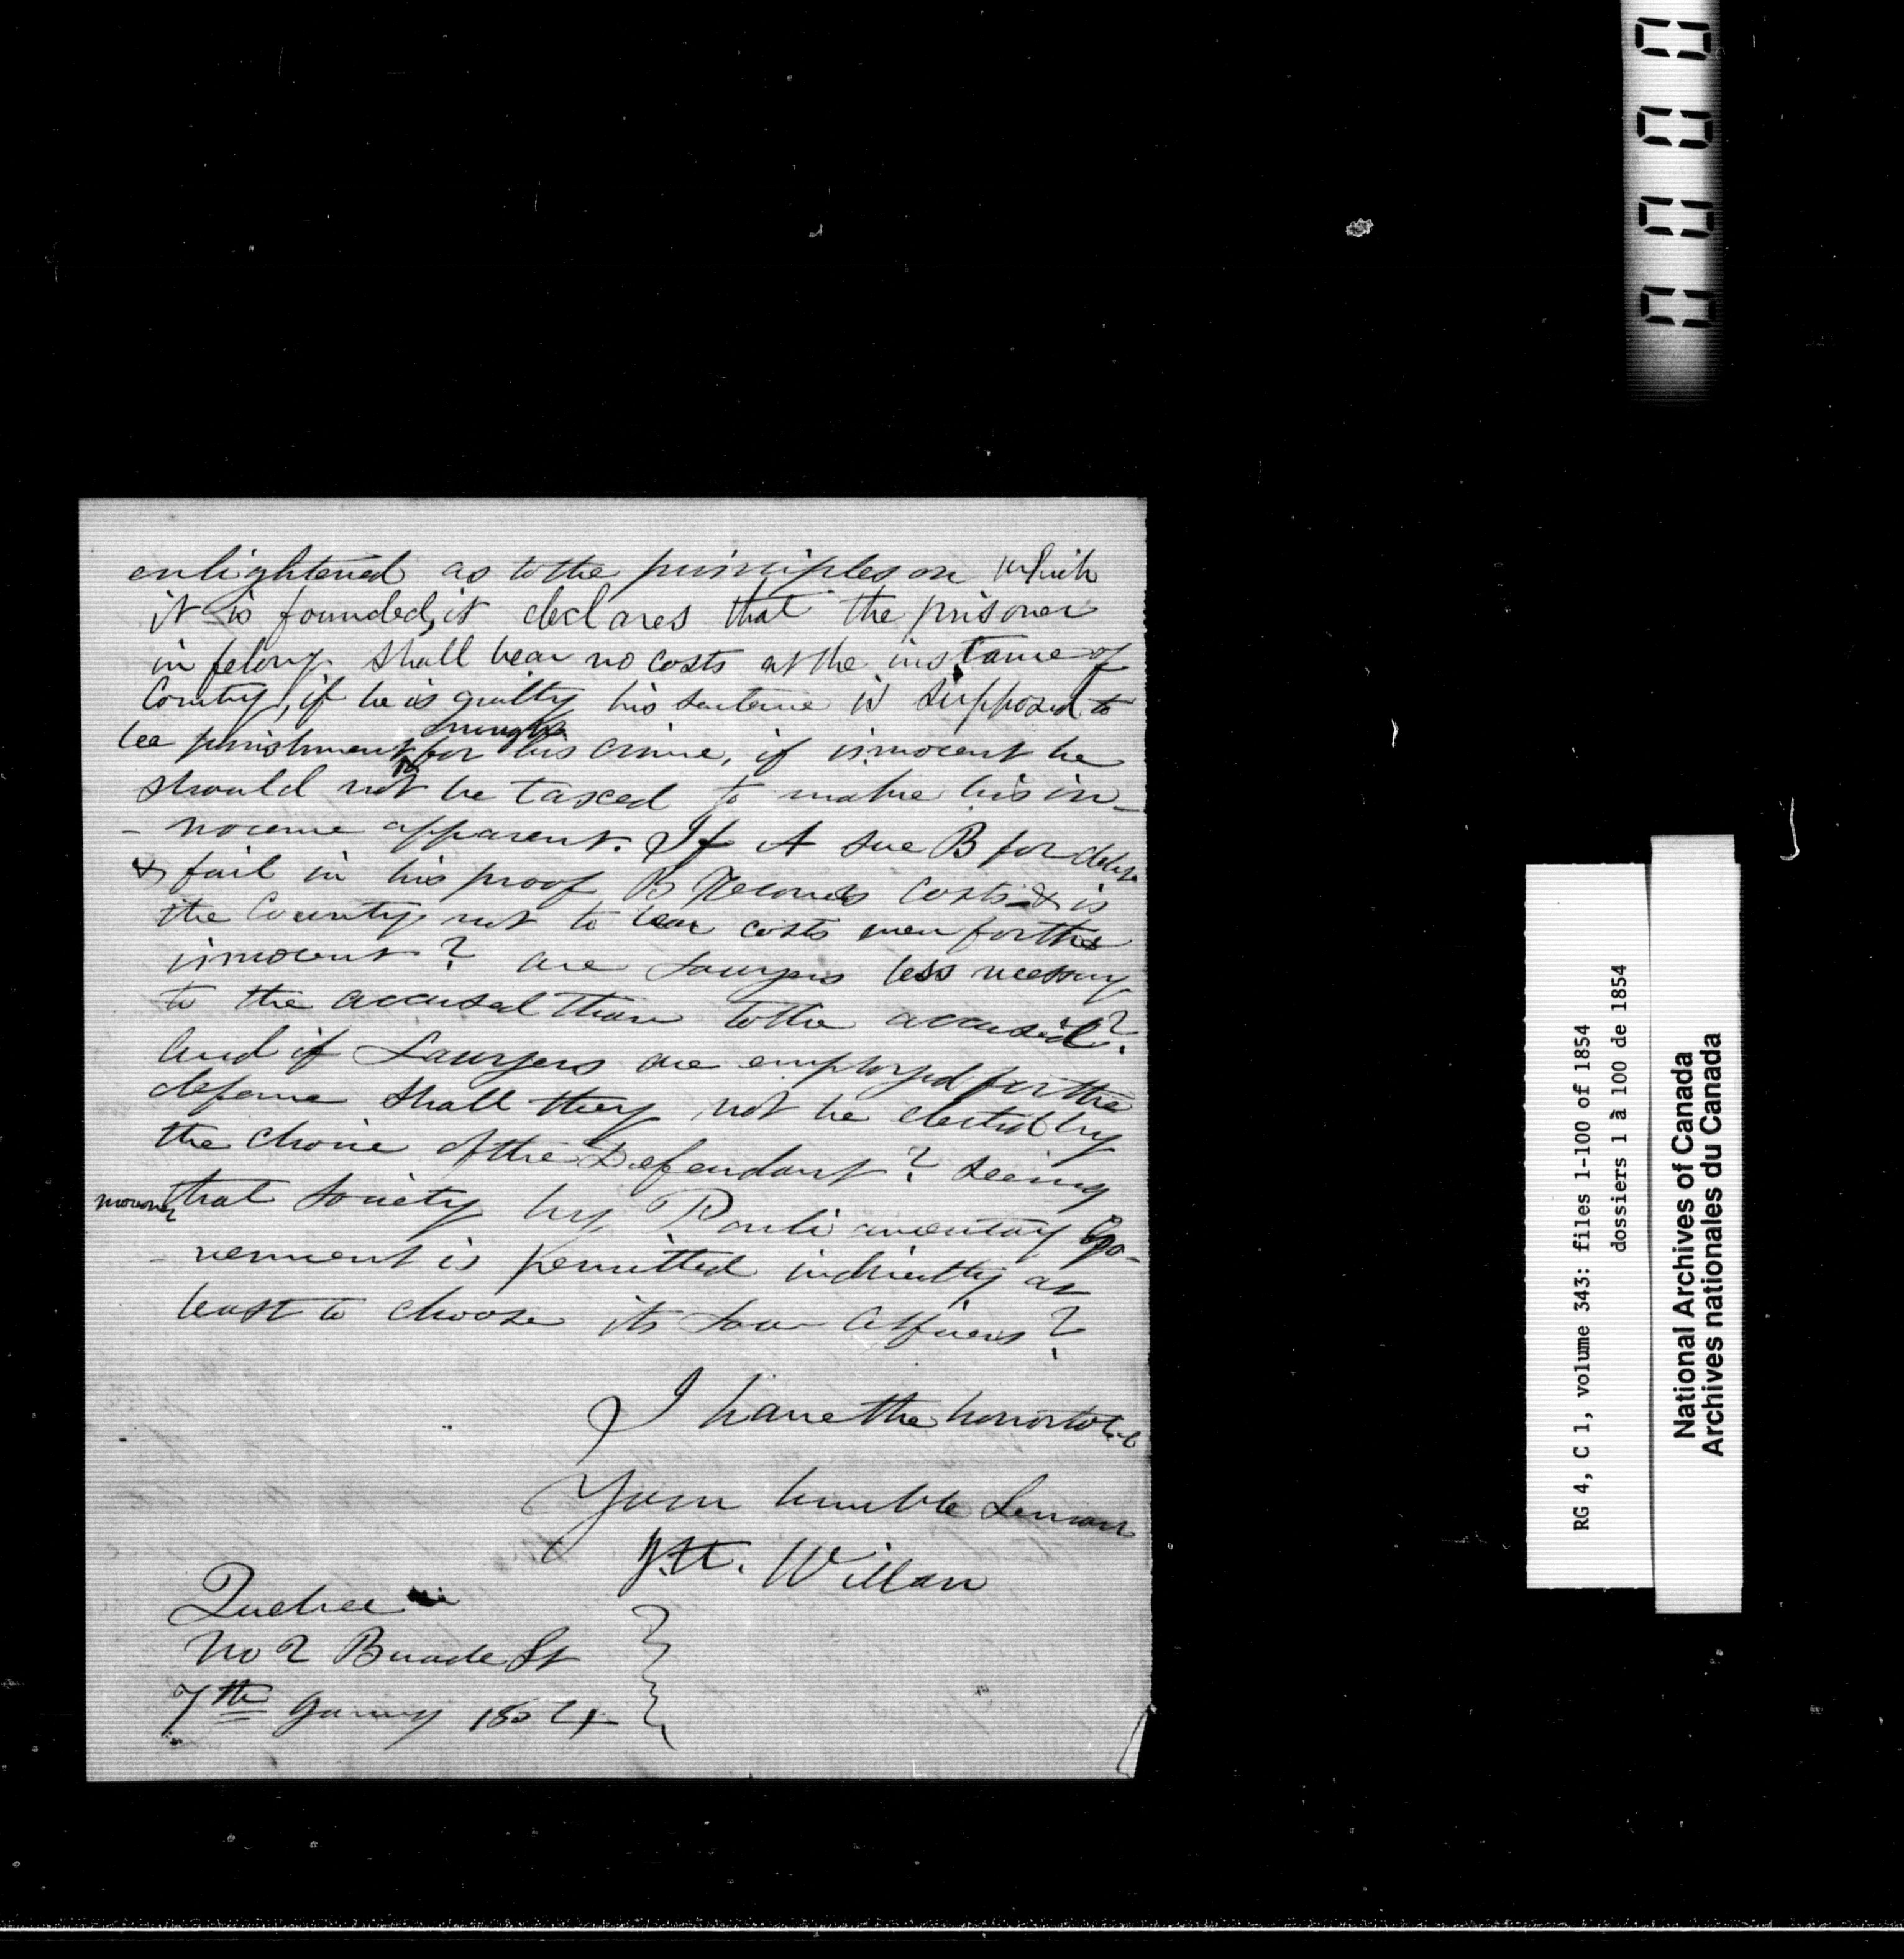 enlightened as to the principles on which
it is founded, it declares that the prisoner
in felony shall bear no costs at the instance of
County, if he is guilty his sentence is supposed to
enough
be punishment for his crime, if innocent he
should not be taxed to make his in-
-nocence apparent. If A sue B for debt
& fail in his proof B Recovers costs & is
the County not to bear costs even for the
innocent? are Lawyers less necessary
to the accused than to the accused?
And if Lawyers are employed for the
defence shall they not be elected by
the choice of the Defendant? seeing
moreover that society by Parliamentary Go-
-vernment is permitted indirectly at
least to choose its Law Officers?
I have the honor to be
Your humble Servant
J.H. Willan
Quebec
No 2 Buade St
7th January 1854
RG 4, C 1, volume 343: files 1-100 of 1854
dossiers 1 à 100 de 1854
National Archives of Canada
Archives nationales du Canada